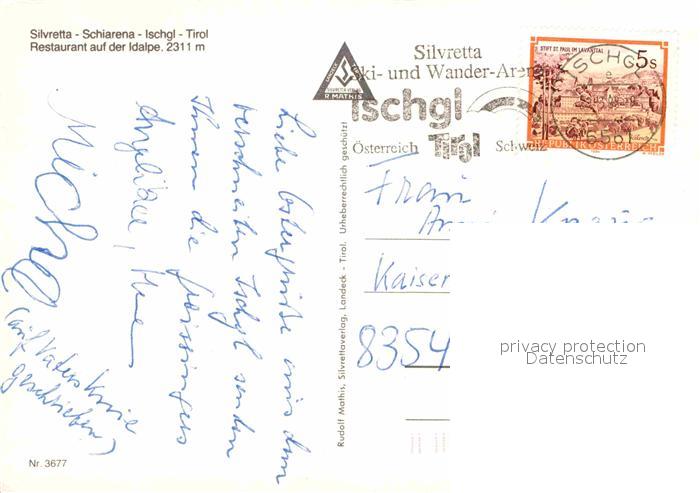 Silvretta - Schiarena - Ischgl - Tirol
Restaurant auf der Idalpe, 2311 m
SILVRETTA VERLAG
R. MATHIS
Silvretta
Ski- und Wander-Arena
Ischgl
Tirol
Österreich Schweiz
STIFT ST. PAUL IM LAVANTTAL
5 S
REPUBLIK ÖSTERREICH
ISCHGL
6561
Liebe Ostergrüße aus dem
verschneiten Ischgl senden
Ihnen die
Angelika,
Michel
(auf Vaters Knie
geschrieben)
Rudolf Mathis, Silvrettaverlag, Landeck - Tirol. Urheberrechtlich geschützt
Frau
Kaiser
8354
privacy protection
Datenschutz
Nr. 3677